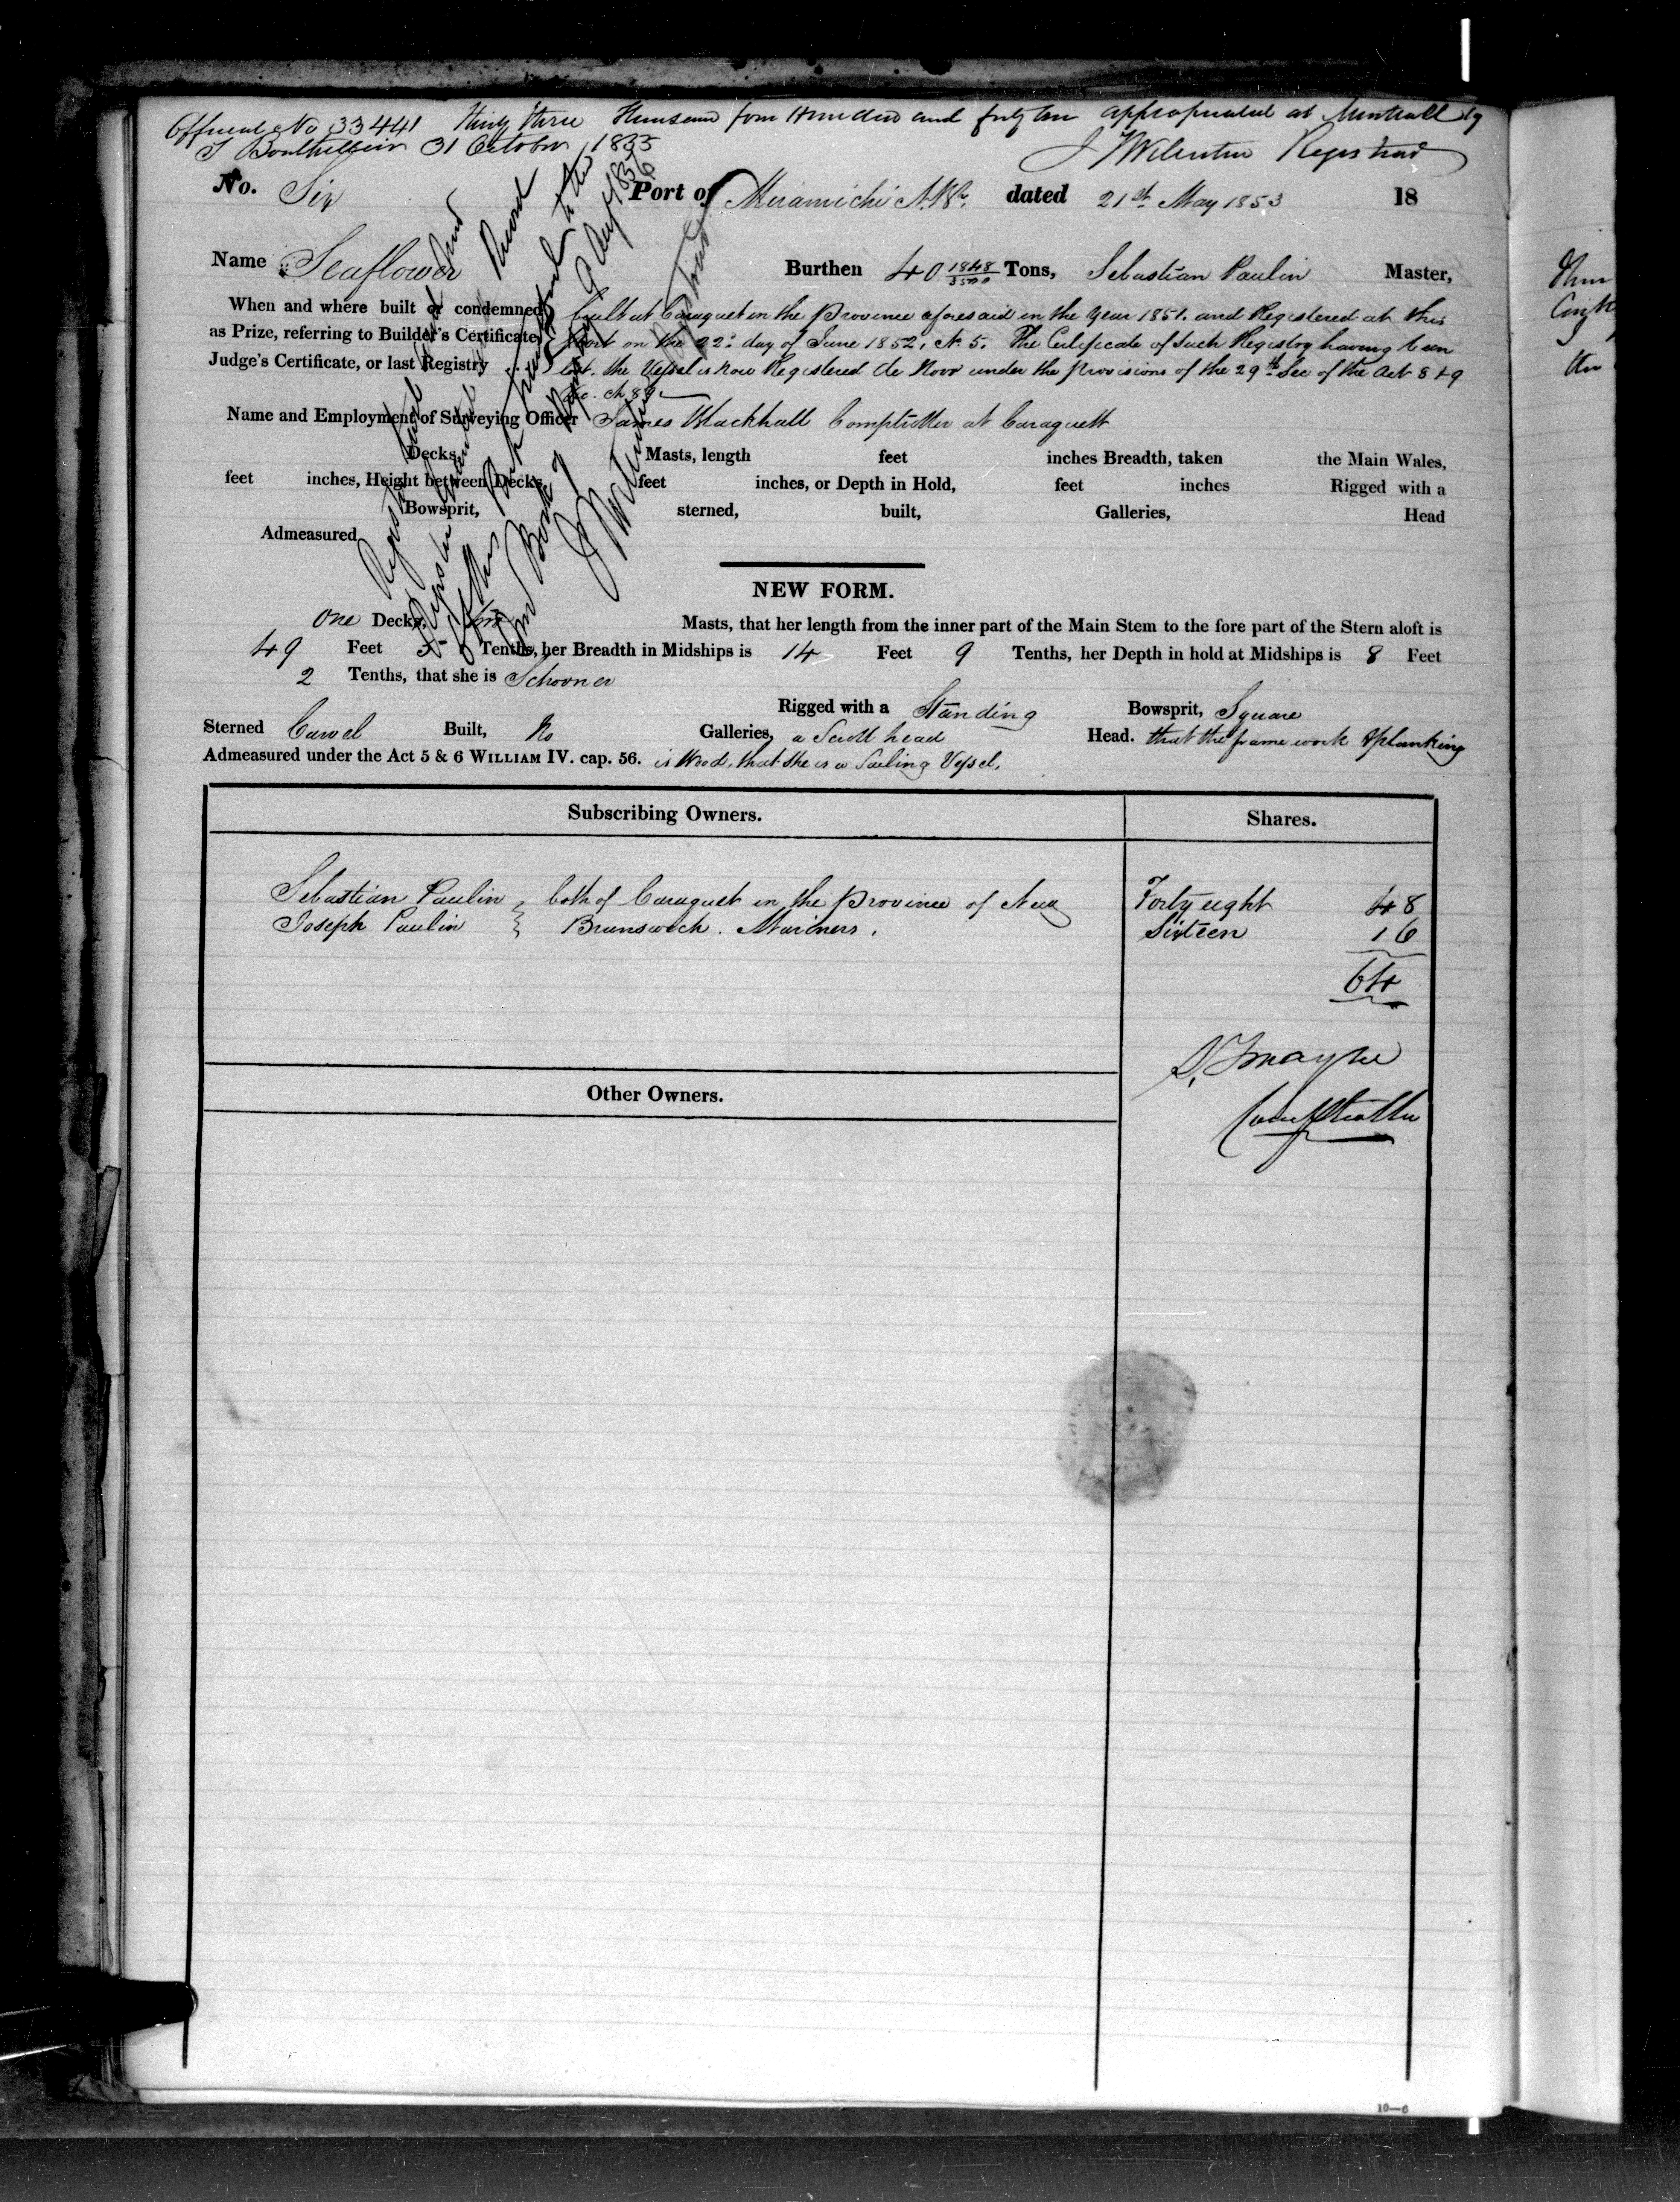 Official No 33441 Thirty three Thousand four Hundred and forty one appropriated at Montreal by
T Bouthillier 31 October 1855 J Wilentin Registrar
No. Six Port of Miramichi N.Bk. dated 21st May 1853 18
Name Seaflower Burthen 40 1848/3500 Tons, Sebastian Paulin Master,
When and where built or condemned built at Caraquet in the Province aforesaid in the Year 1851. and Registered at this
as Prize, referring to Builder's Certificate, Port on the 22d. day of June 1852, No 5. The Certificate of Such Registry having been
Judge's Certificate, or last Registry lost. the Vessel is now Registered de Novo under the provisions of the 29th Sec of the Act 8 & 9
Vic. Ch 89
Name and Employment of Surveying Officer James Blackhall Comptroller at Caraquett
Decks, Masts, length feet inches Breadth, taken the Main Wales,
feet inches, Height between Decks, feet inches, or Depth in Hold, feet inches Rigged with a
Bowsprit, sterned, built, Galleries, Head
Admeasured
Registry and
Register Record
this Book transferred to the
Book of 9 Augt 1856
Registrar
NEW FORM.
One Decks, two Masts, that her length from the inner part of the Main Stem to the fore part of the Stern aloft is
49 Feet 5 Tenths, her Breadth in Midships is 14 Feet 9 Tenths, her Depth in hold at Midships is 8 Feet
2 Tenths, that she is Schooner
Rigged with a Standing Bowsprit, Square
Sterned Carvel Built, No Galleries, a Scroll head Head. that the frame work & planking
Admeasured under the Act 5 & 6 WILLIAM IV. cap. 56. is Wood, that she is a Sailing Vessel,
Subscribing Owners. Shares.
Sebastian Paulin } both of Caraquet in the Province of New Forty eight 48
Joseph Paulin } Brunswick. Mariners. Sixteen 16
64
Comptroller
Other Owners.
10—6